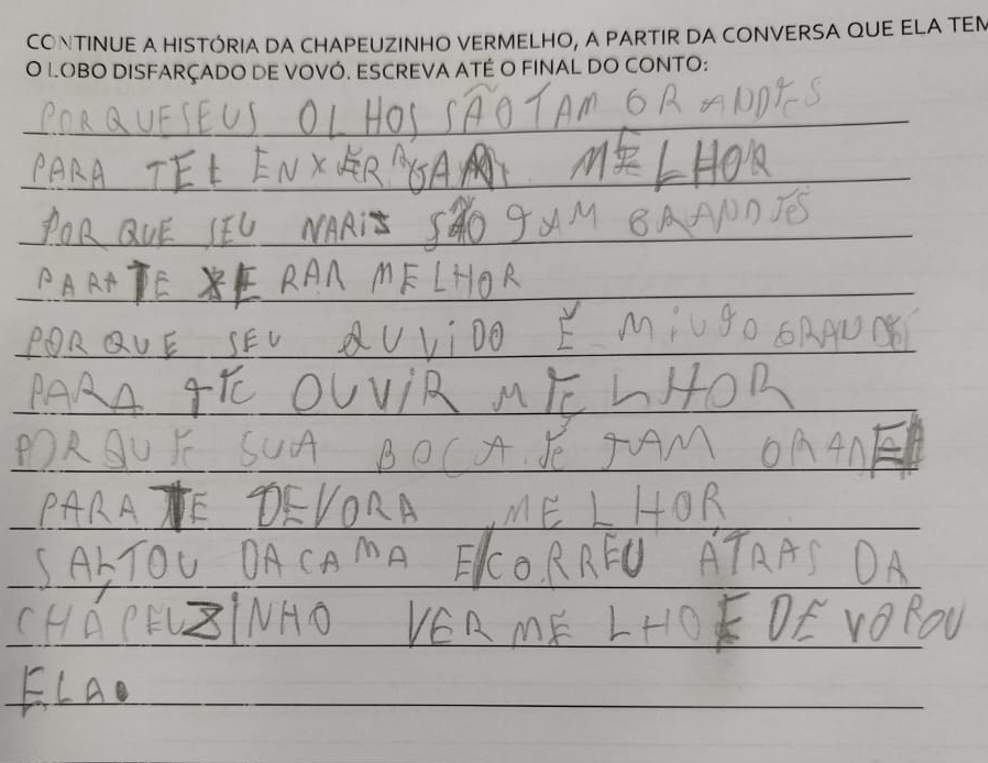 CONTINUE A HISTÓRIA DA CHAPEUZINHO VERMELHO, A PARTIR DA CONVERSA QUE ELA TEM
O LOBO DISFARÇADO DE VOVÓ. ESCREVA ATÉ O FINAL DO CONTO:
PORQUESEUS OLHOS SÃO TAM GRANDES
PARA TE ENXERGAR MELHOR
POR QUE SEU NARIS SÃO TAM GRANDES
PARA TE XERAR MELHOR
POR QUE SEU OUVIDO É MIUTO GRANDE
PARA TE OUVIR MELHOR
POR QUE SUA BOCA É TAM GRANDE
PARA TE DEVORA MELHOR
SALTOU DA CAMA E CORREU ATRAS DA
CHAPEUZINHO VERMELHO E DEVOROU
ELA.